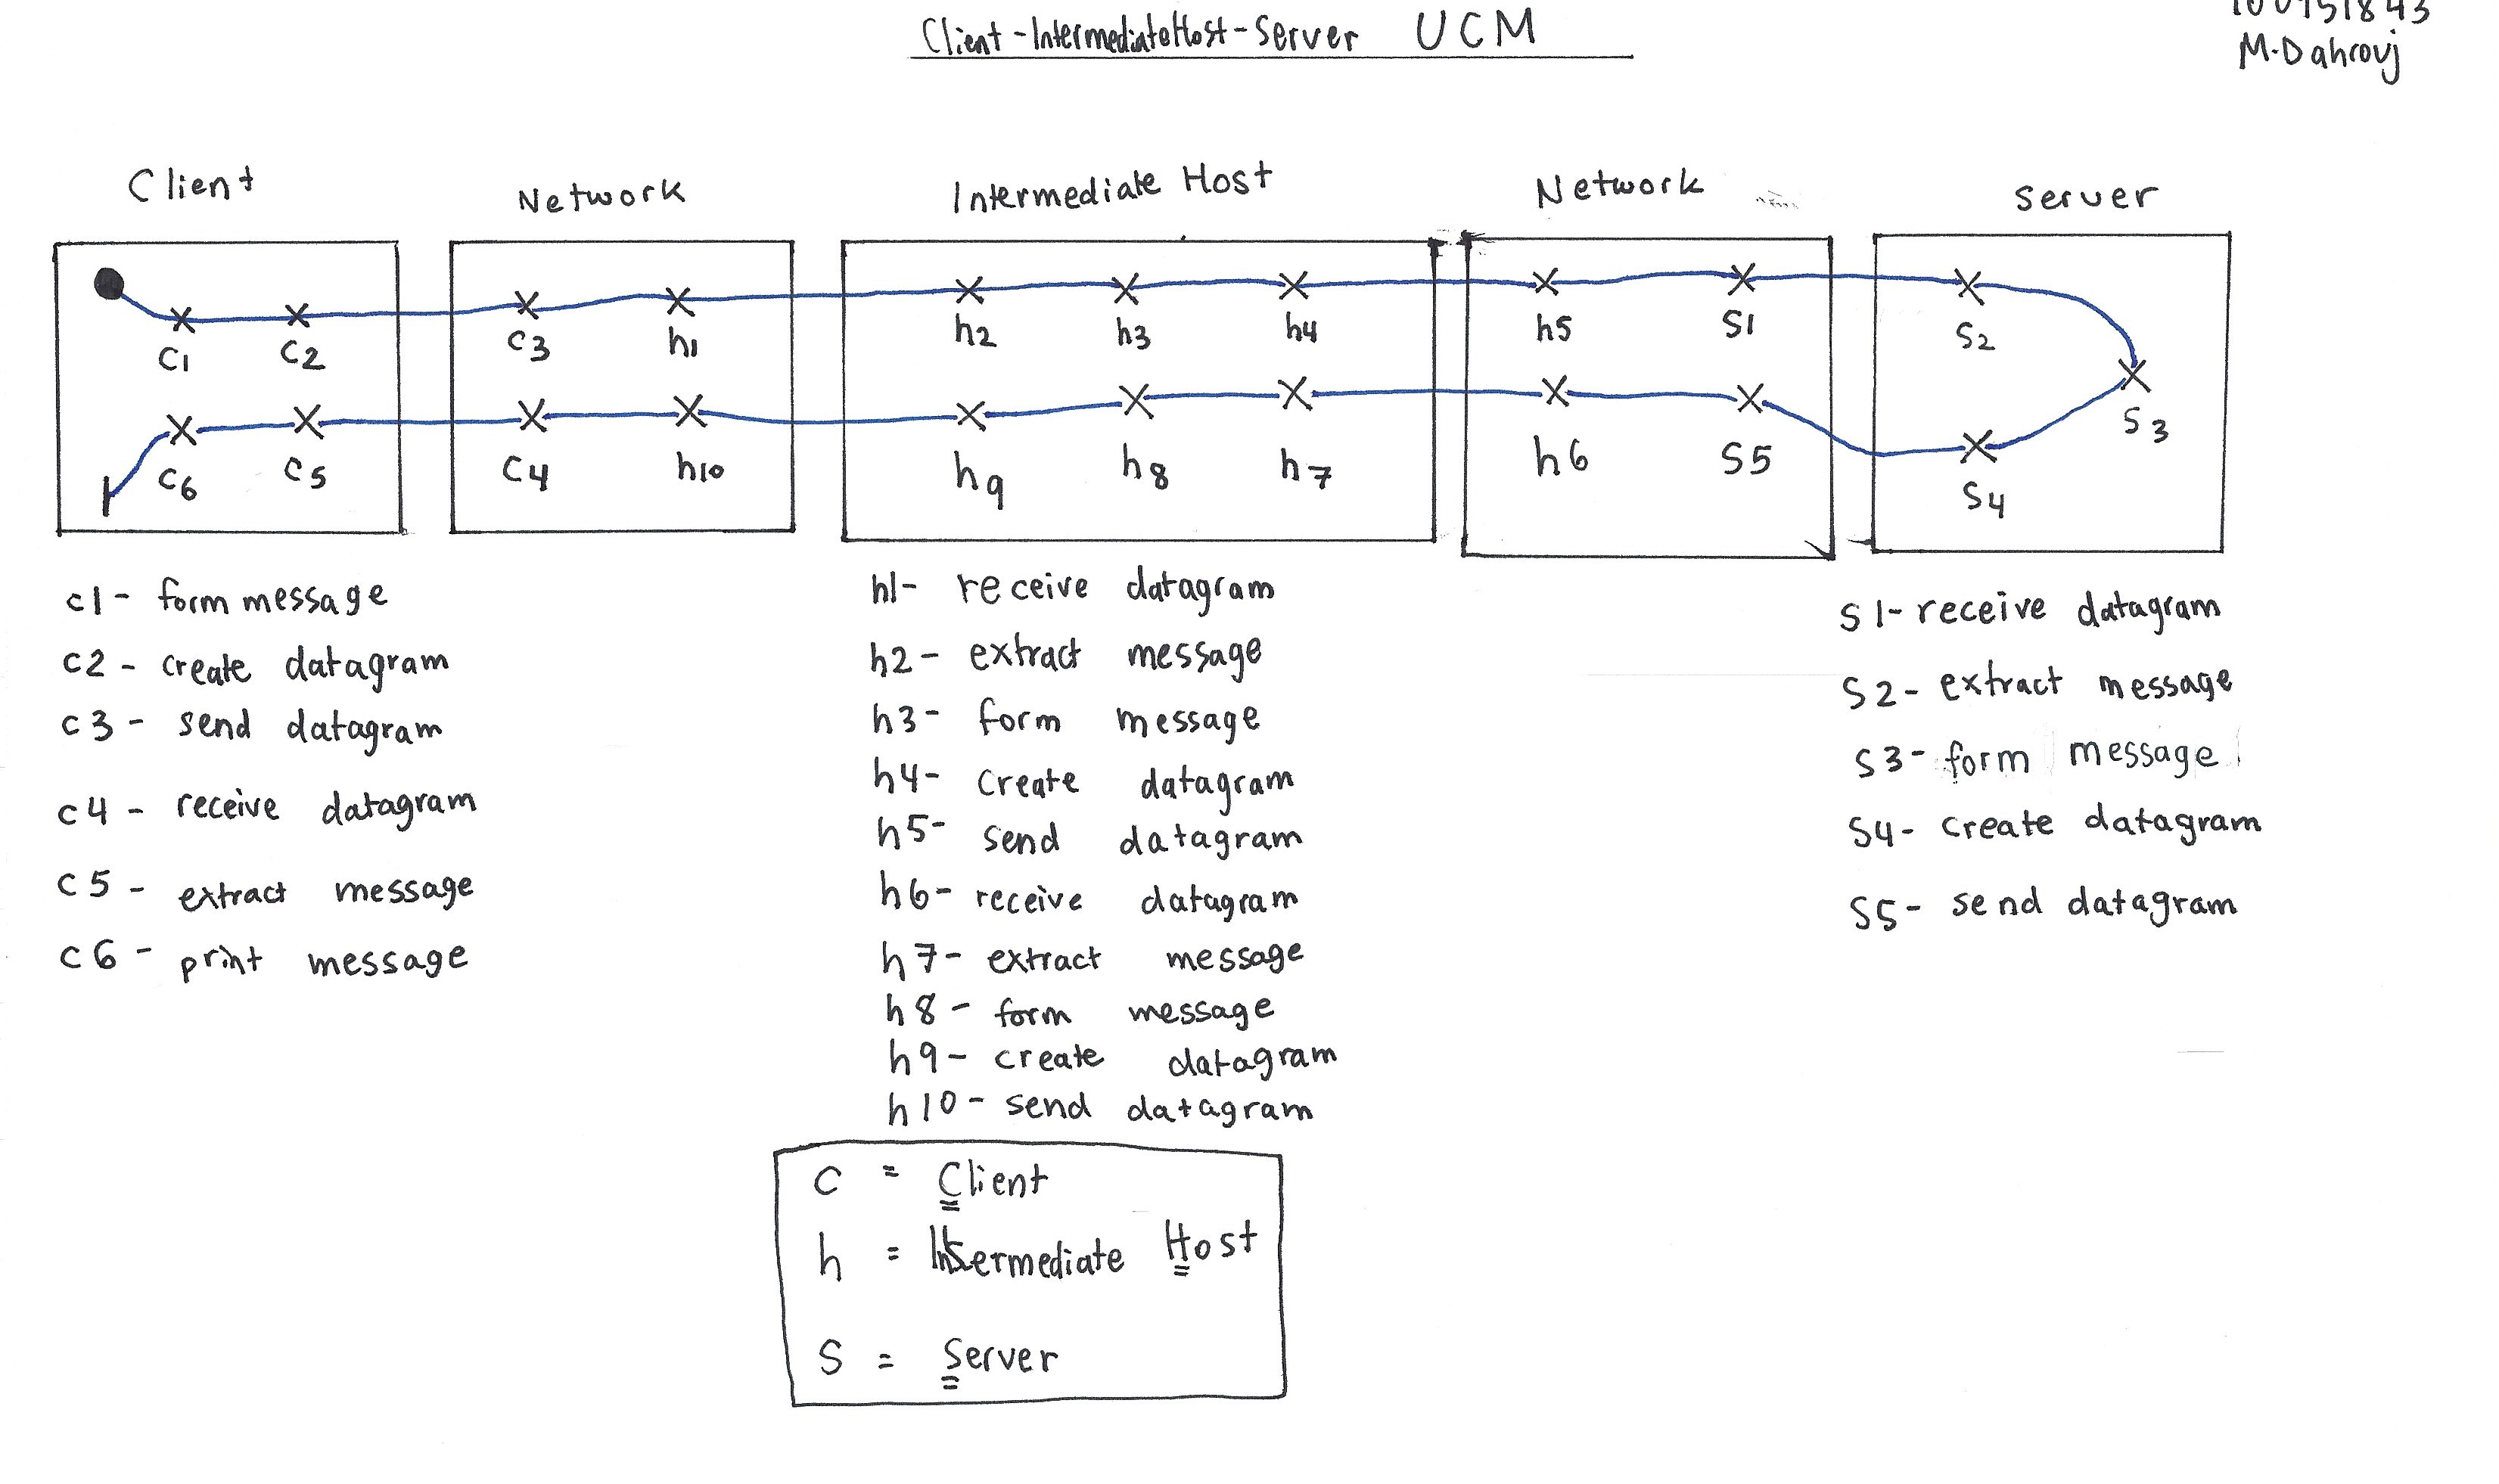 Client-IntermediateHost-Server UCM
M.Dahrouj
Client
Network
Intermediate Host
Network
Server
c1 c2 c3 h1 h2 h3 h4 h5 S1 S2
S3
c6 c5 c4 h10 h9 h8 h7 h6 S5 S4
c1- form message
c2 - create datagram
c3 - send datagram
c4 - receive datagram
c5 - extract message
c6 - print message
h1- receive datagram
h2- extract message
h3- form message
h4- create datagram
h5- send datagram
h6- receive datagram
h7- extract message
h8- form message
h9- create datagram
h10- send datagram
S1- receive datagram
S2- extract message
S3- form message
S4- create datagram
S5- send datagram
C = Client
h = Intermediate Host
S = Server